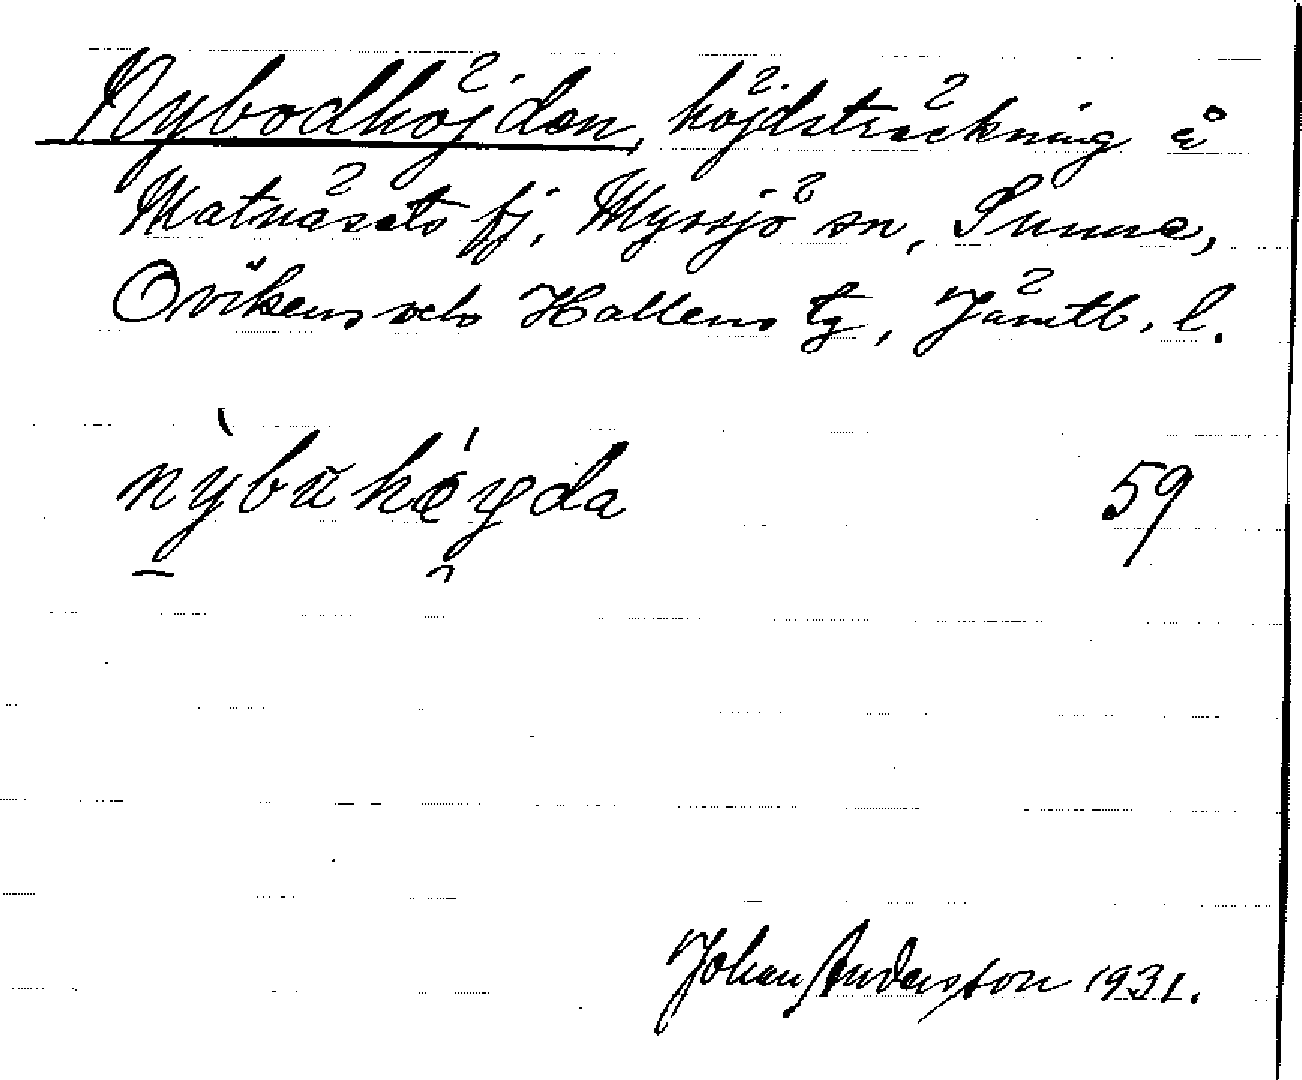 Nybodhöjden, höjdsträckning å
Matnäsets fj, Myssjö sn, Sunne,
Ovikens och Hallens tg, Jämtl. l.
nỳbuhǿyda 59
Johan Andersson 1931.